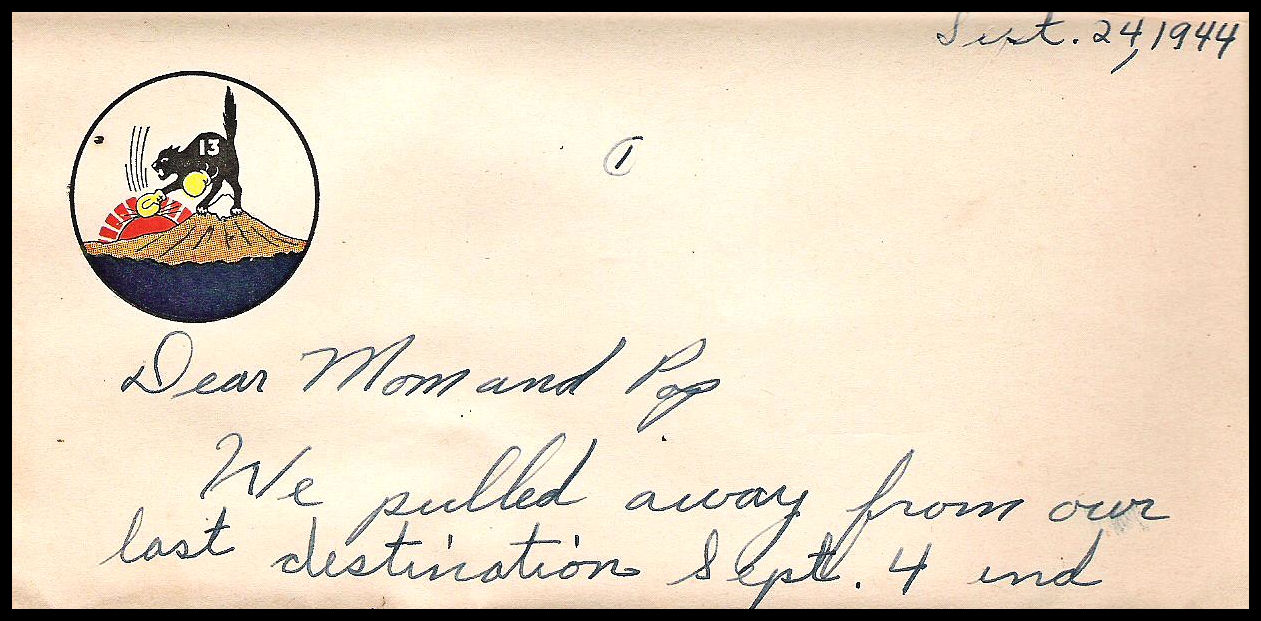 Sept. 24, 1944
1
13
Dear Mom and Pop
We pulled away from our
last destination Sept. 4 and